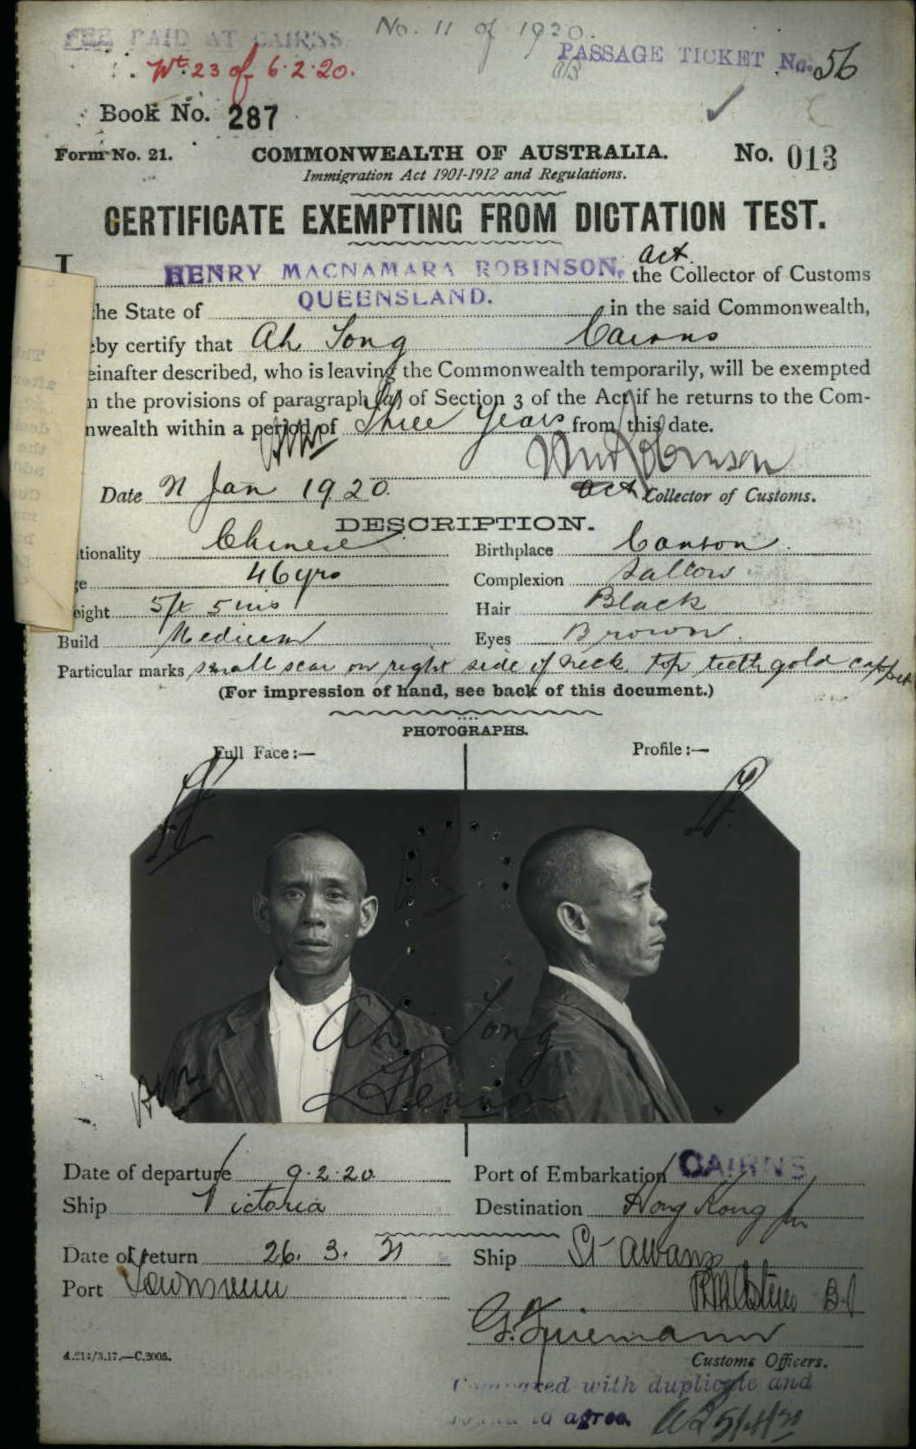 FEE PAID AT CAIRNS
No. 11 of 1920.
Wt. 23 of 6.2.20.
PASSAGE TICKET No. 56
Book No. 287
Form No. 21.
COMMONWEALTH OF AUSTRALIA.
No. 013
Immigration Act 1901-1912 and Regulations.
CERTIFICATE EXEMPTING FROM DICTATION TEST.
I HENRY MACNAMARA ROBINSON, act. the Collector of Customs
the State of QUEENSLAND. in the said Commonwealth,
eby certify that Ah Song Cairns
einafter described, who is leaving the Commonwealth temporarily, will be exempted
the provisions of paragraph of Section 3 of the Act if he returns to the Com-
nwealth within a period of Three Years from this date.
HMR
HMRobinson
Date 21 Jan 1920. act Collector of Customs.
DESCRIPTION.
tionality Chinese Birthplace Canton.
46 yrs Complexion Sallow
eight 5ft 5ins Hair Black
Build Medium Eyes Brown.
Particular marks small scar on right side of neck, top teeth gold capped
(For impression of hand, see back of this document.)
PHOTOGRAPHS.
Full Face:— Profile:—
Ah Song
HMR
Date of departure 9.2.20 Port of Embarkation CAIRNS
Ship Victoria Destination Hong Kong
Date of return 26. 3. 21 Ship St Albans
Port Townsville
Customs Officers.
4.214/3.17.—C.2005.
Compared with duplicate and
found to agree.